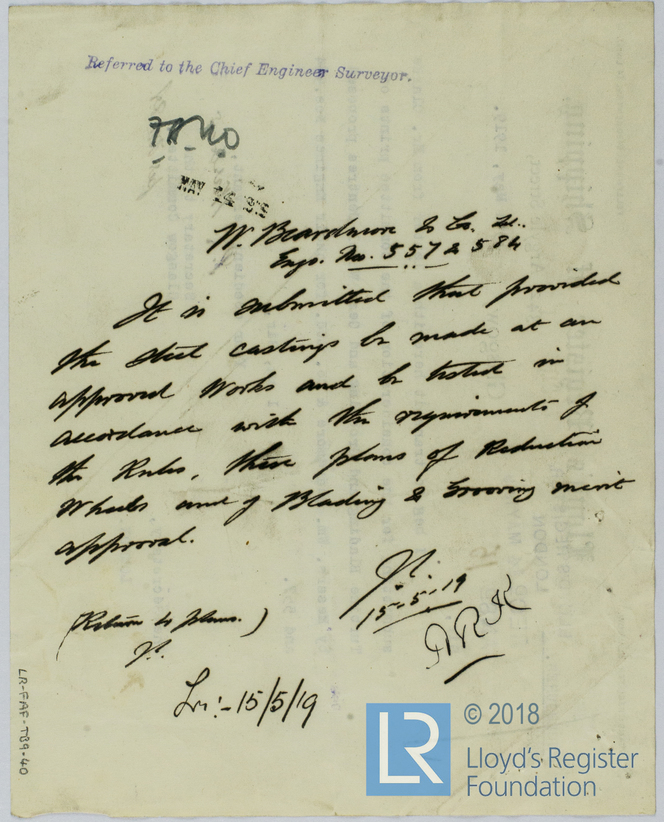 Referred to the Chief Engineer Surveyor.
MAY 1919
W. Beardmore & Co. Ld.
Engs. No. 557 & 584
It is submitted that provided
the steel castings be made at an
approved Works and be tested in
accordance with the requirements of
the Rules, these plans of Reduction
Wheels and of Blading & Grooving merit
approval.
15-5-19
ARK
(Return to plans.)
Lr:- 15/5/19
LR-FAF-T89-40
LR
© 2018
Lloyd's Register
Foundation